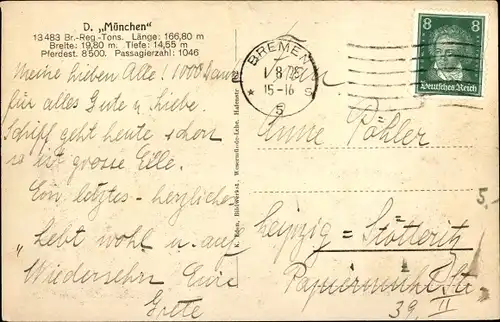 D. „München"
13 483 Br.-Reg.-Tons. Länge: 166,80 m
Breite: 19,80 m. Tiefe: 14,55 m
Pferdest. 8500. Passagierzahl: 1046
Meine lieben Alte! 1000 Dank
für alles Gute u. Liebe.
Schiff geht heute schon
so ist grosse Eile.
Ein letztes - herzliches
„Lebt wohl u. auf
Wiedersehn Eure
Grete
BREMEN
15-16
* 5 s
8 8
Deutsches Reich
Anne Pöhler
Leipzig = Stötteritz
Papiermühl Str
39 II
5.-